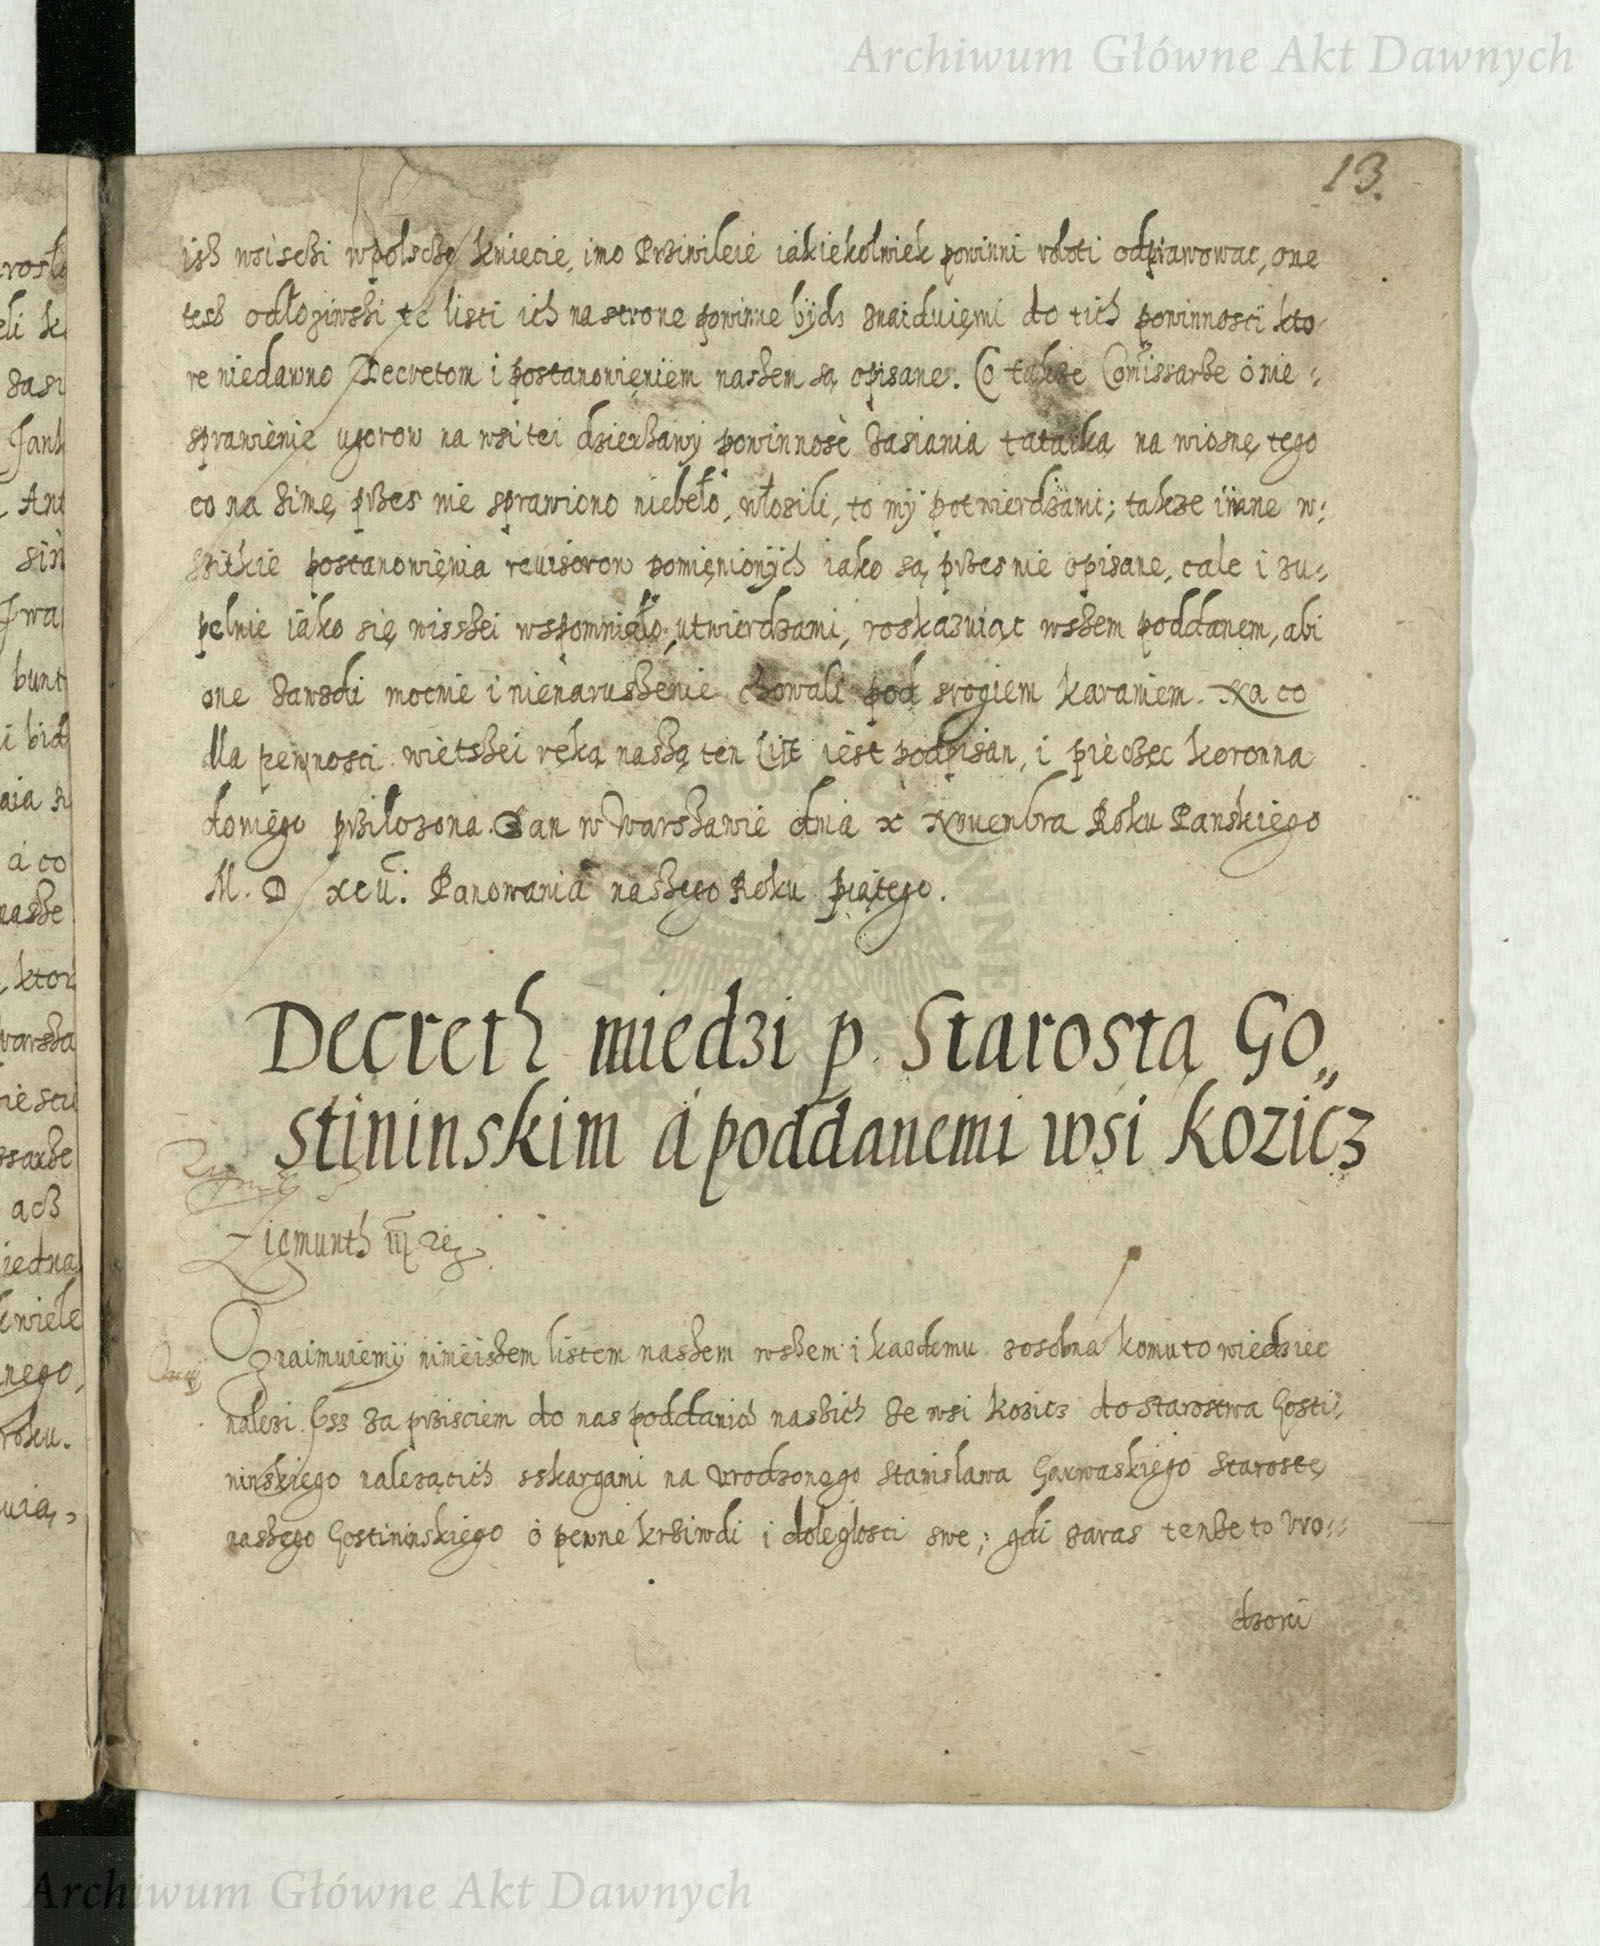 Archiwum Główne Akt Dawnych
13.
isz wsisczi wpolsce kmiecie, imo Prziwileie iakiekolwiek powinni roboti odprawowac, one
tesz odłoziwszi te listi ich na strone powinne bydz znaiduięmi do tich powinnosci kto
re niedawno Decretom i postanowięniem naszem są opisane. Co także Comissarze o nie
sprawienie ugorow na wsi tei dzierzawy powinnosc zasiania tatarką na wiosnę tego
co na zimę przes nie sprawiono niebeło, włosili, to my potwierdzami; takze inne w
szitkie postanowięnia reuisorow pomięnionych iako są przes nie opisane, cale i zu
pelnie iako się wisszei wspomniało, utwierdzami, roskazuiąc wszem poddanem, abi
one zawzdi mocnie i nienaruszenie chowali pod srogiem karaniem. Na co
dla pewnosci wietszei ręką naszą ten list iest podpisan, i pieczęc koronna
do niego prziłozona. Dan w Warszawie dnia x Nouembra Roku Panskiego
M. D xcii. Panowania naszego Roku piątego.
Decreth miedzi p. Starostą Go„
stininskim á poddanemi wsi Kozicz
Zigmunth III
Oznaimuiemy ninieiszem listem naszem wszem i kazdemu zosobna komu to wiedziec
nalezi. Iss za prziściem do nas poddanich naszich ze wsi Kozicz do starostwa Gosti
ninskiego nalezącich sskargami na vrodzonego Stanislawa Garwaskiego Starostę
naszego Gostininskiego o pewne krziwdi i doleglosci swe; gdi zaras tenze to Vro
dzoni
Archiwum Główne Akt Dawnych